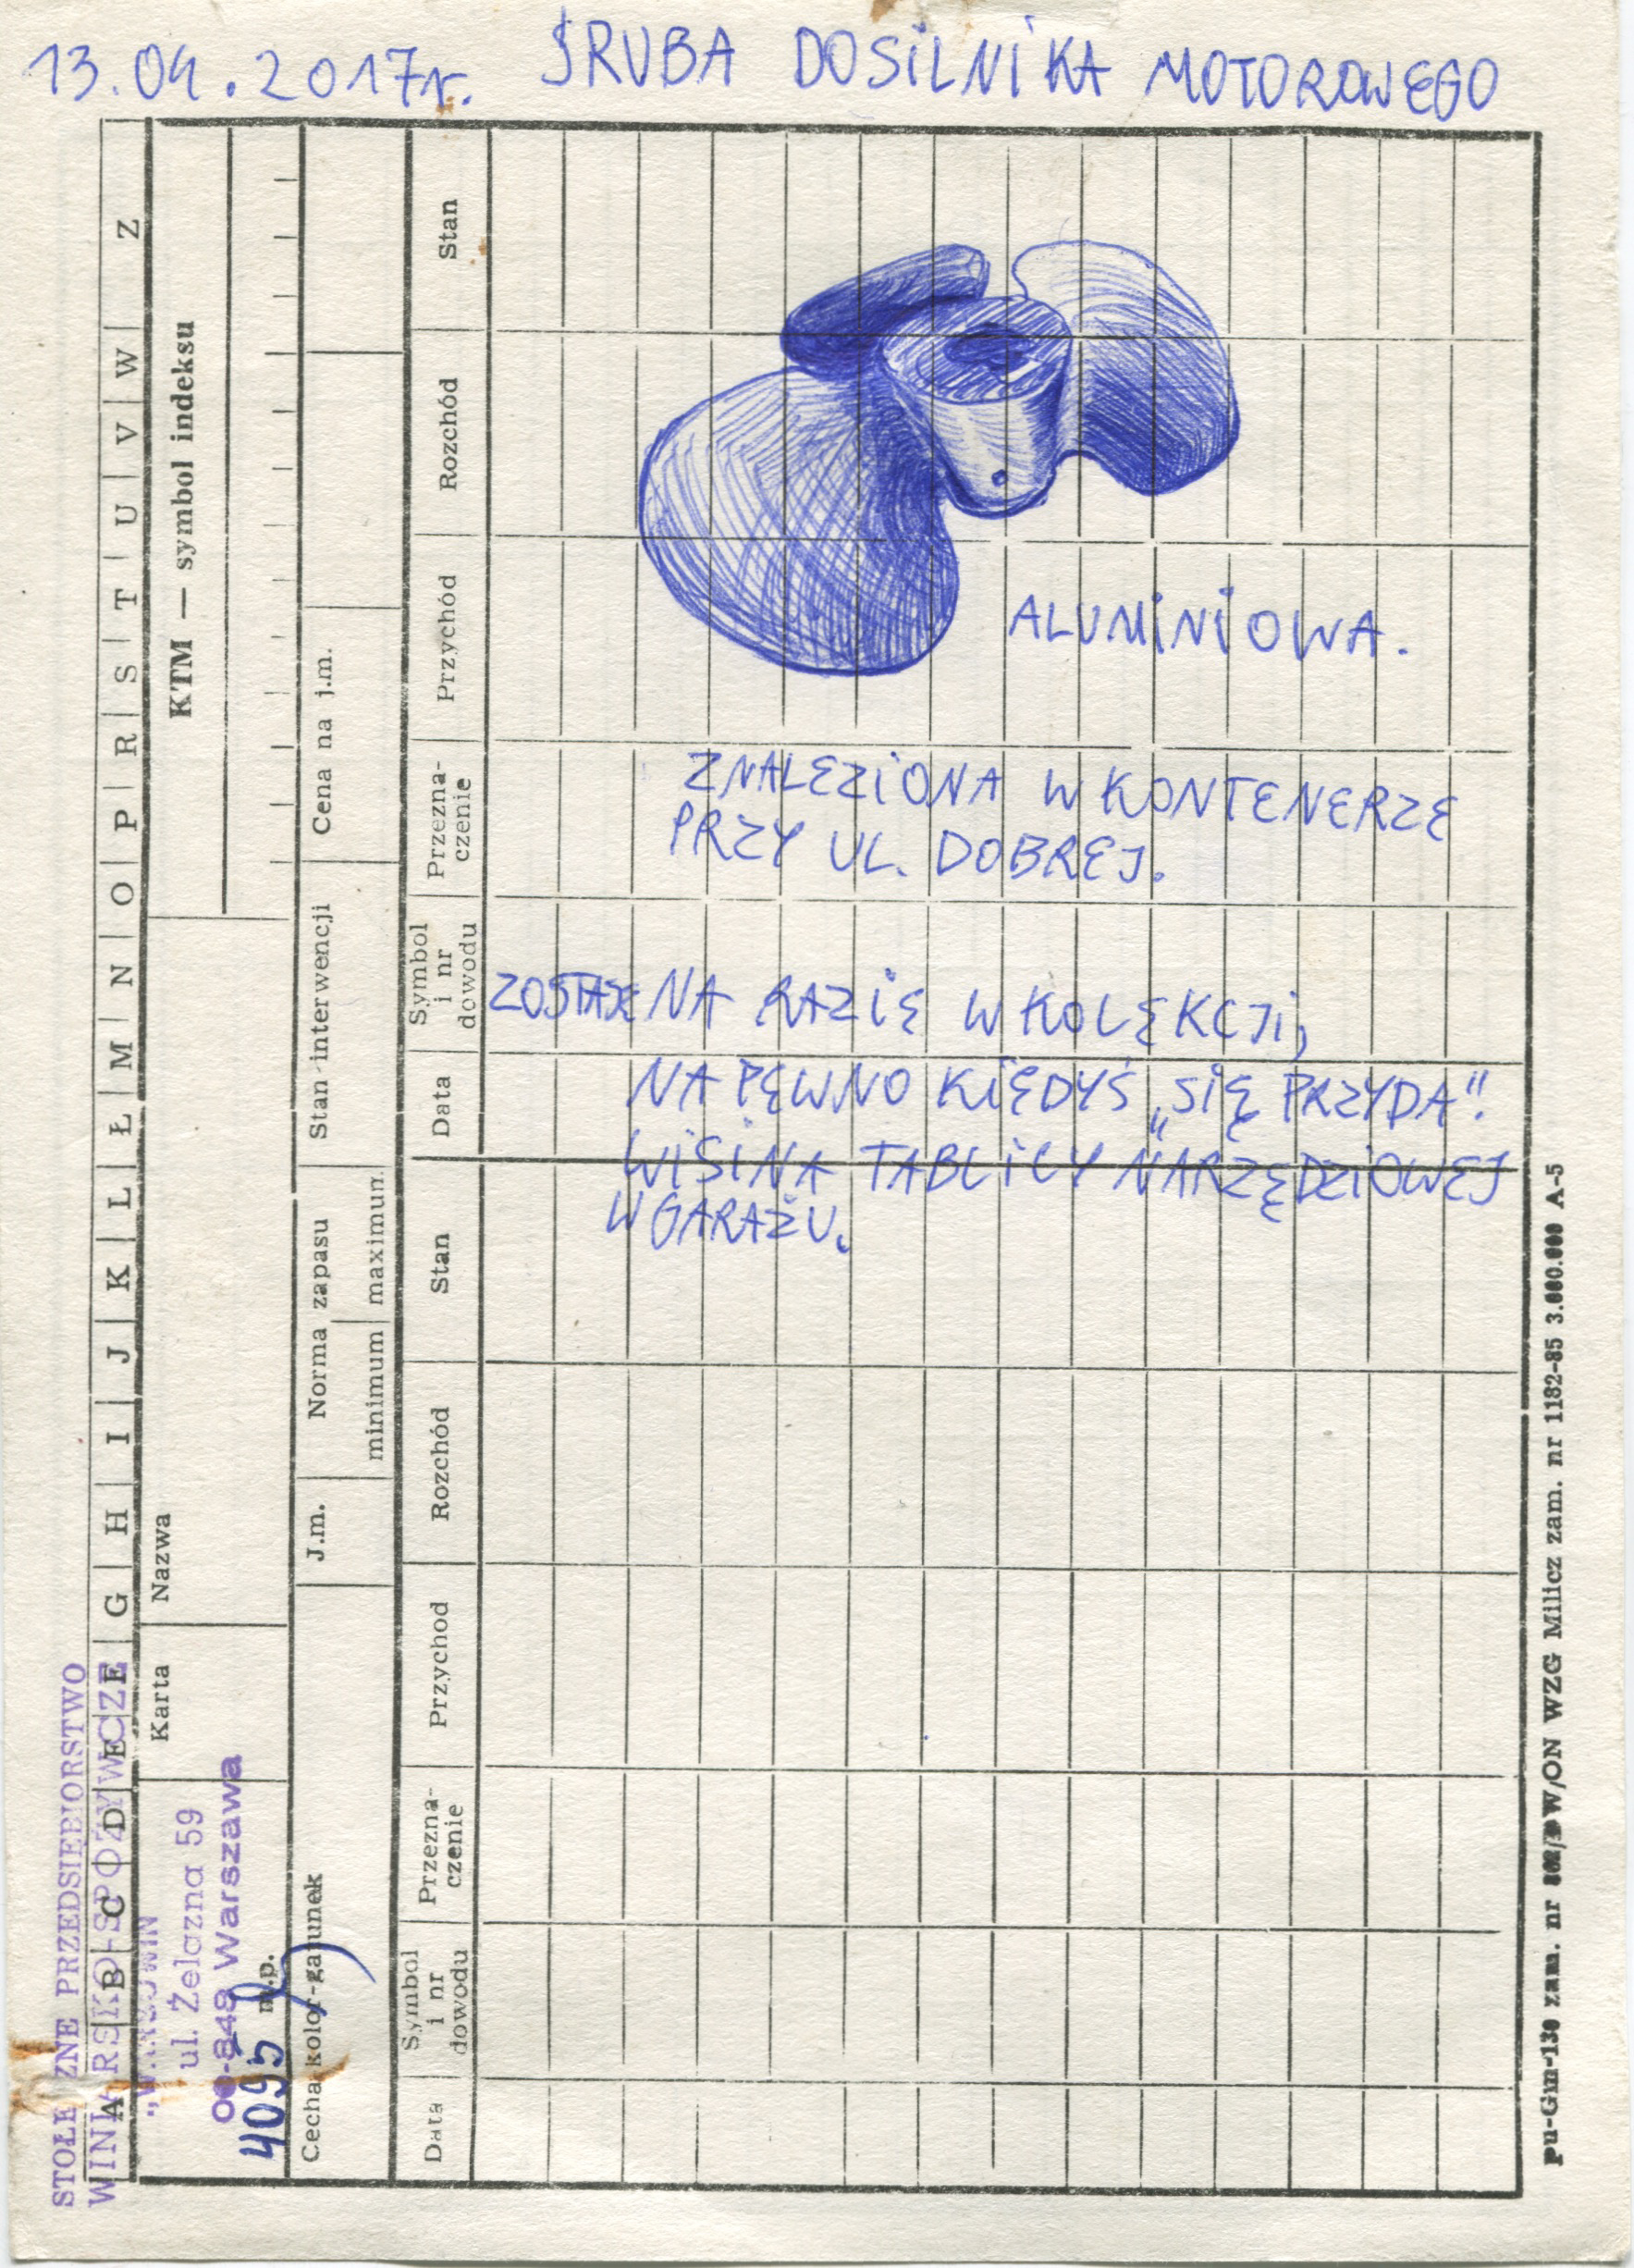 13.04.2017r. ŚRUBA DO SILNIKA MOTOROWEGO
ALUMINIOWA.
ZNALEZIONA W KONTENERZE
PRZY UL. DOBREJ.
ZOSTAJE NA RAZIE W KOLEKCJI,
NA PEWNO KIEDYŚ „SIĘ PRZYDA”.
WISI NA TABLICY NARZĘDZIOWEJ
W GARAŻU.
STOŁE ZNE PRZEDSIĘBIORSTWO
WINIARSKO-SPOŻYWCZE
„WARSOWIN
ul. Żelazna 59
00-848 Warszawa
4095 m.p.
A B C D E F G H I J K L Ł M N O P R S T U V W Z
Karta
Nazwa
KTM — symbol indeksu
Cecha-kolor-gatunek
J.m.
Norma zapasu
minimum maximum
Stan interwencji
Cena na j.m.
Data
Symbol
i nr
dowodu
Przezna-
czenie
Przychod
Rozchód
Stan
Data
Symbol
i nr
dowodu
Przezna-
czenie
Przychód
Rozchód
Stan
pu-Gm-130 zam. nr W/ON WZG Milicz zam. nr 1182-85 3.000.000 A-5